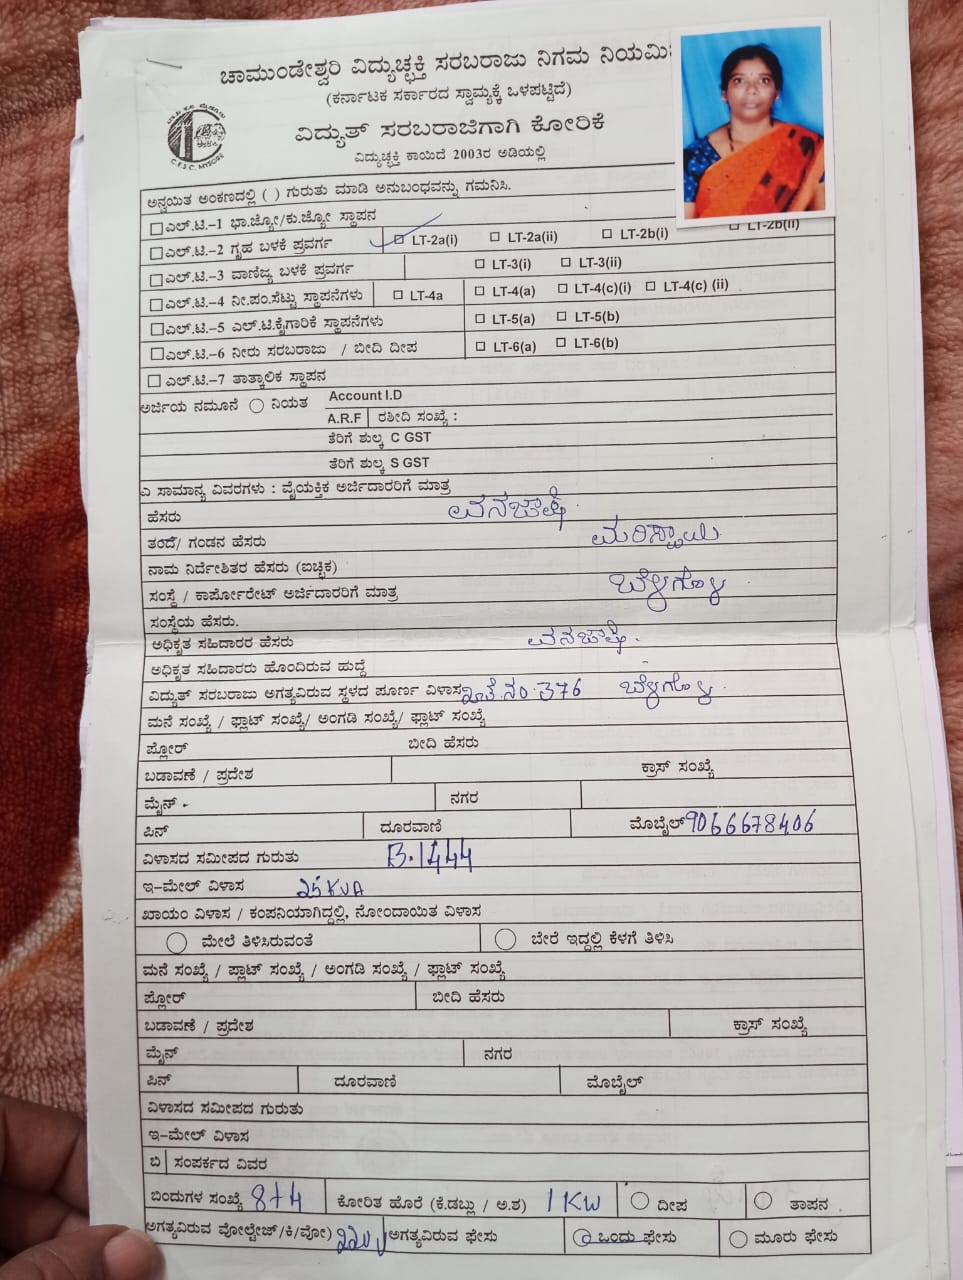 ಚಾಮುಂಡೇಶ್ವರಿ ವಿದ್ಯುಚ್ಛಕ್ತಿ ಸರಬರಾಜು ನಿಗಮ ನಿಯಮಿ
(ಕರ್ನಾಟಕ ಸರ್ಕಾರದ ಸ್ವಾಮ್ಯಕ್ಕೆ ಒಳಪಟ್ಟಿದೆ)
ವಿದ್ಯುತ್ ಸರಬರಾಜಿಗಾಗಿ ಕೋರಿಕೆ
ವಿದ್ಯುಚ್ಛಕ್ತಿ ಕಾಯಿದೆ 2003ರ ಅಡಿಯಲ್ಲಿ
C.E.S.C. MYSORE
ಅನ್ವಯಿತ ಅಂಕಣದಲ್ಲಿ ( ) ಗುರುತು ಮಾಡಿ ಅನುಬಂಧವನ್ನು ಗಮನಿಸಿ.
ಎಲ್.ಟಿ.–1 ಭಾ.ಜ್ಯೋ/ಕು.ಜ್ಯೋ ಸ್ಥಾಪನ
ಎಲ್.ಟಿ.–2 ಗೃಹ ಬಳಕೆ ಪ್ರವರ್ಗ LT-2a(i) LT-2a(ii) LT-2b(i) LT-2b(ii)
ಎಲ್.ಟಿ.–3 ವಾಣಿಜ್ಯ ಬಳಕೆ ಪ್ರವರ್ಗ LT-3(i) LT-3(ii)
ಎಲ್.ಟಿ.–4 ನೀ.ಪಂ.ಸೆಟ್ಟು ಸ್ಥಾಪನೆಗಳು LT-4a LT-4(a) LT-4(c)(i) LT-4(c) (ii)
ಎಲ್.ಟಿ.–5 ಎಲ್.ಟಿ.ಕೈಗಾರಿಕೆ ಸ್ಥಾಪನೆಗಳು LT-5(a) LT-5(b)
ಎಲ್.ಟಿ.–6 ನೀರು ಸರಬರಾಜು / ಬೀದಿ ದೀಪ LT-6(a) LT-6(b)
ಎಲ್.ಟಿ.–7 ತಾತ್ಕಾಲಿಕ ಸ್ಥಾಪನ
ಅರ್ಜಿಯ ನಮೂನೆ ನಿಯತ Account I.D
A.R.F ರಶೀದಿ ಸಂಖ್ಯೆ :
ತೆರಿಗೆ ಶುಲ್ಕ C GST
ತೆರಿಗೆ ಶುಲ್ಕ S GST
ಎ ಸಾಮಾನ್ಯ ವಿವರಗಳು : ವೈಯಕ್ತಿಕ ಅರ್ಜಿದಾರರಿಗೆ ಮಾತ್ರ
ಹೆಸರು ವನಜಾಕ್ಷಿ
ತಂದೆ/ ಗಂಡನ ಹೆಸರು ಮರಿಸ್ವಾಮಿ
ನಾಮ ನಿರ್ದೇಶಿತರ ಹೆಸರು (ಐಚ್ಛಿಕ)
ಸಂಸ್ಥೆ / ಕಾರ್ಪೋರೇಟ್ ಅರ್ಜಿದಾರರಿಗೆ ಮಾತ್ರ ಬೆಳಗೊಳ
ಸಂಸ್ಥೆಯ ಹೆಸರು.
ಅಧಿಕೃತ ಸಹಿದಾರರ ಹೆಸರು ವನಜಾಕ್ಷಿ.
ಅಧಿಕೃತ ಸಹಿದಾರರು ಹೊಂದಿರುವ ಹುದ್ದೆ
ವಿದ್ಯುತ್ ಸರಬರಾಜು ಅಗತ್ಯವಿರುವ ಸ್ಥಳದ ಪೂರ್ಣ ವಿಳಾಸ 376 ಬೆಳಗೊಳ.
ಮನೆ ಸಂಖ್ಯೆ / ಫ್ಲಾಟ್ ಸಂಖ್ಯೆ/ ಅಂಗಡಿ ಸಂಖ್ಯೆ/ ಫ್ಲಾಟ್ ಸಂಖ್ಯೆ
ಫ್ಲೋರ್ ಬೀದಿ ಹೆಸರು
ಬಡಾವಣೆ / ಪ್ರದೇಶ ಕ್ರಾಸ್ ಸಂಖ್ಯೆ
ಮೈನ್ ನಗರ
ಪಿನ್ ದೂರವಾಣಿ ಮೊಬೈಲ್ 9066678406
ವಿಳಾಸದ ಸಮೀಪದ ಗುರುತು B.1444
ಇ–ಮೇಲ್ ವಿಳಾಸ 25 KVA
ಖಾಯಂ ವಿಳಾಸ / ಕಂಪನಿಯಾಗಿದ್ದಲ್ಲಿ, ನೋಂದಾಯಿತ ವಿಳಾಸ
ಮೇಲೆ ತಿಳಿಸಿರುವಂತೆ ಬೇರೆ ಇದ್ದಲ್ಲಿ ಕೆಳಗೆ ತಿಳಿಸಿ
ಮನೆ ಸಂಖ್ಯೆ / ಪ್ಲಾಟ್ ಸಂಖ್ಯೆ / ಅಂಗಡಿ ಸಂಖ್ಯೆ / ಫ್ಲಾಟ್ ಸಂಖ್ಯೆ
ಫ್ಲೋರ್ ಬೀದಿ ಹೆಸರು
ಬಡಾವಣೆ / ಪ್ರದೇಶ ಕ್ರಾಸ್ ಸಂಖ್ಯೆ
ಮೈನ್ ನಗರ
ಪಿನ್ ದೂರವಾಣಿ ಮೊಬೈಲ್
ವಿಳಾಸದ ಸಮೀಪದ ಗುರುತು
ಇ–ಮೇಲ್ ವಿಳಾಸ
ಬಿ ಸಂಪರ್ಕದ ವಿವರ
ಬಿಂದುಗಳ ಸಂಖ್ಯೆ 8+4 ಕೋರಿತ ಹೊರೆ (ಕಿ.ಡಬ್ಲು / ಅ.ಶ) 1 KW ದೀಪ ತಾಪನ
ಅಗತ್ಯವಿರುವ ವೋಲ್ಟೇಜ್/ಕಿ/ವೋ) 220 V ಅಗತ್ಯವಿರುವ ಫೇಸು ಒಂದು ಫೇಸು ಮೂರು ಫೇಸು